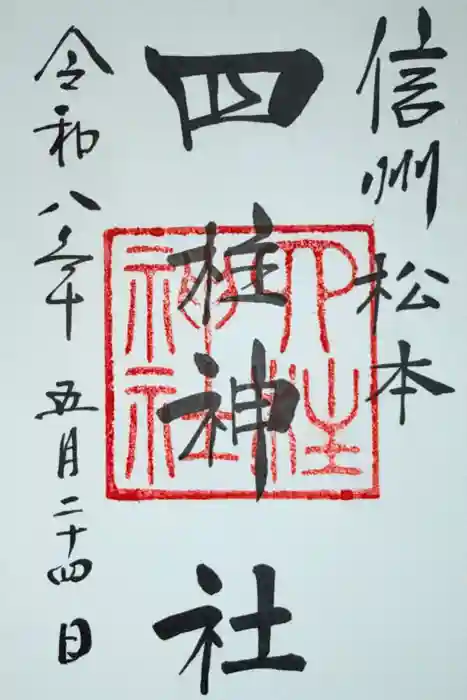 信州松本
四柱神社
四柱神社
令和八年 五月二十四日